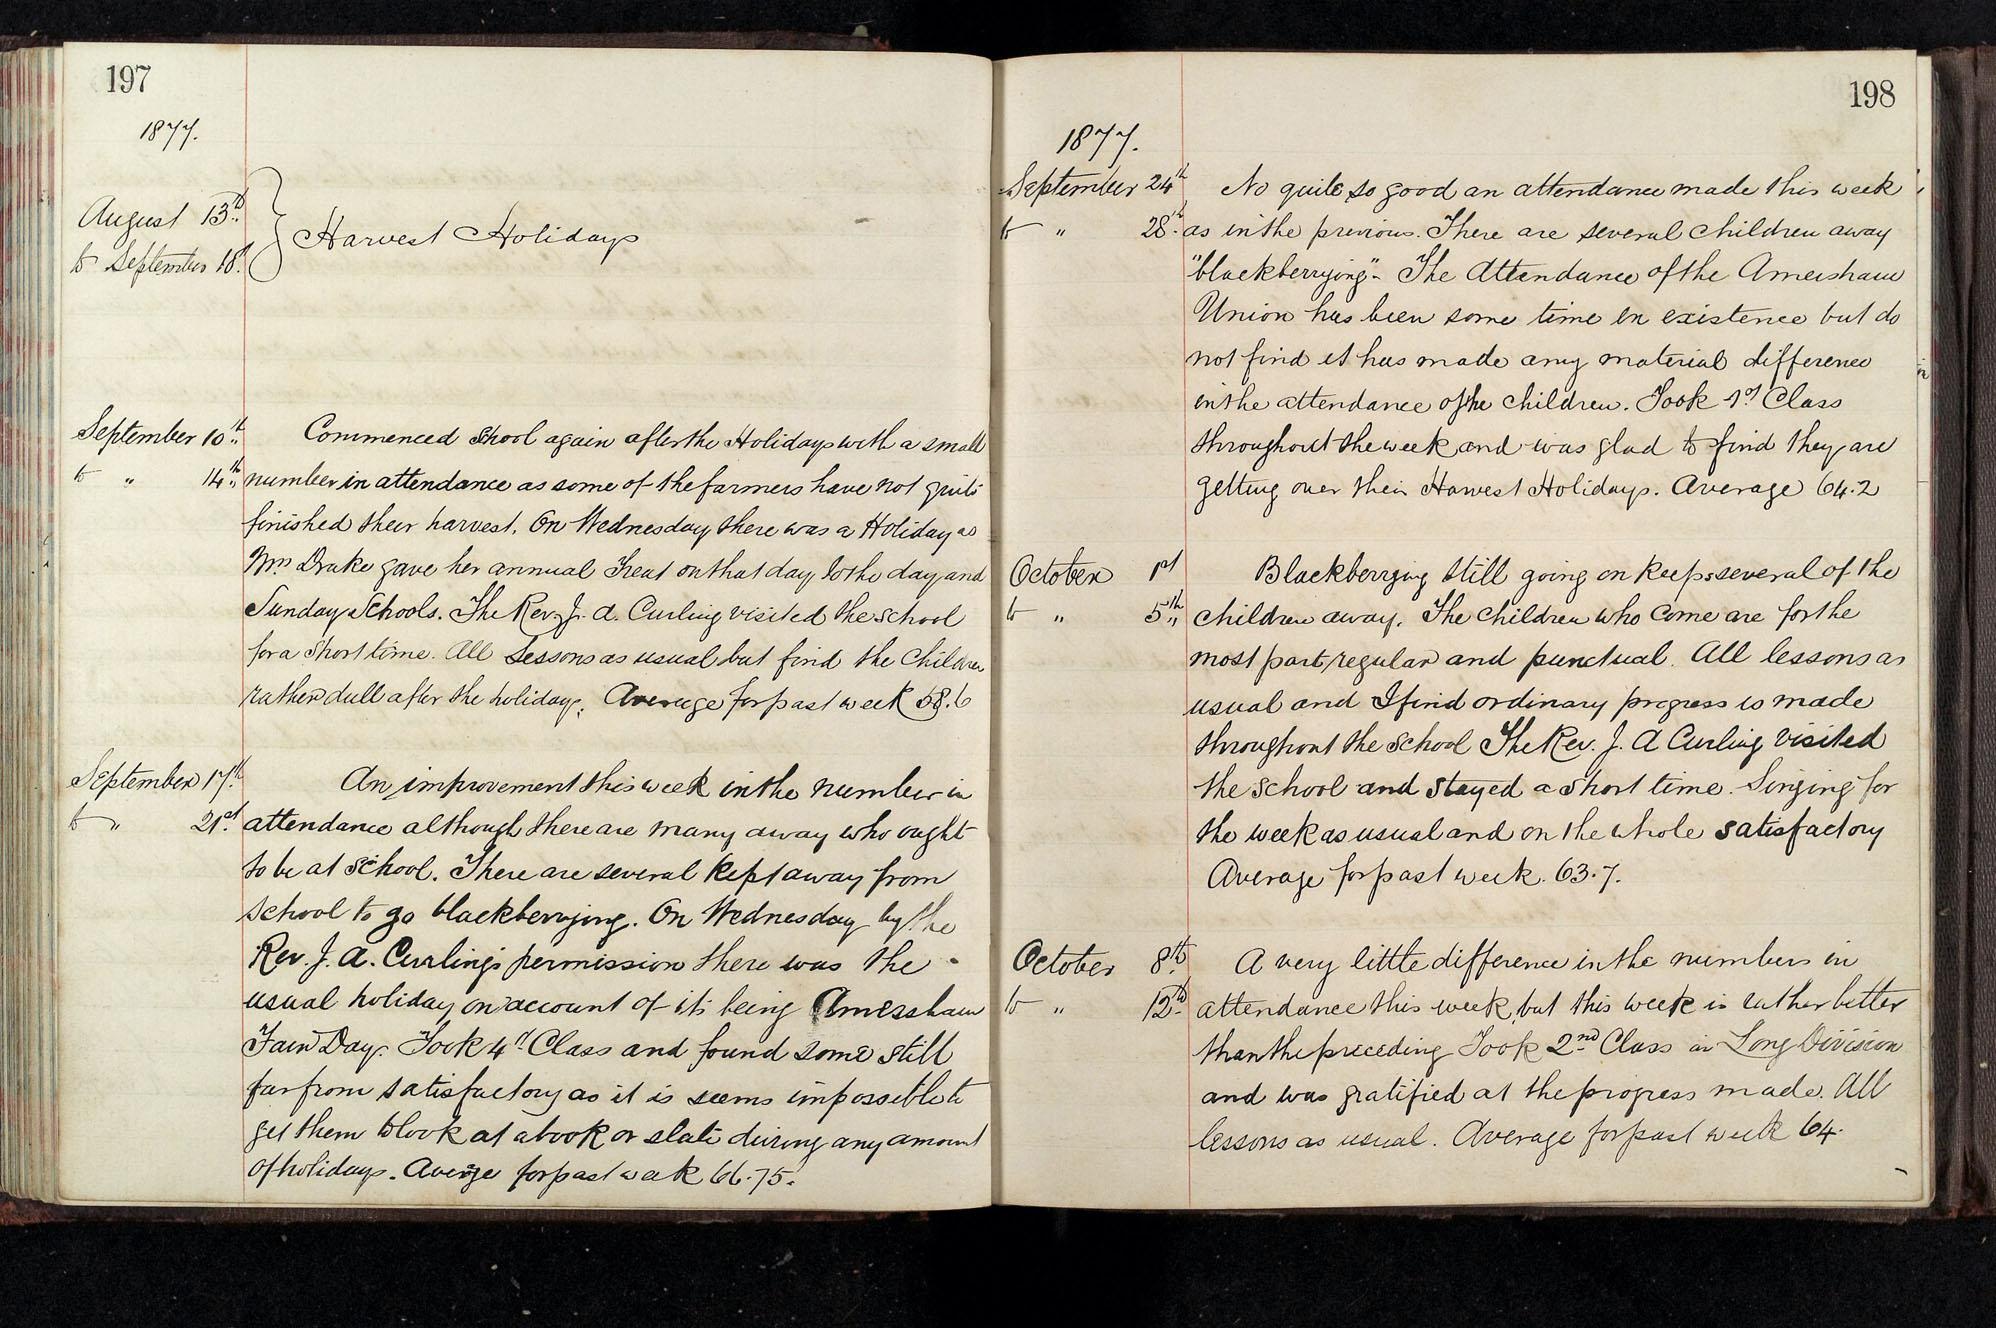 197
1877.
August 13th
to September 18th
Harvest Holidays
September 10th Commenced School again after the Holidays with a small
to " 14th number in attendance as some of the farmers have not quite
finished their harvest. On Wednesday there was a Holiday as
Mrs Drake gave her annual Treat on that day to the day and
Sunday Schools. The Rev. J. A. Curling visited the school
for a short time. All Lessons as usual but find the Children
rather dull after the holidays. Average for past week 58.6
September 17th An improvement this week in the number in
to " 21st attendance although there are many away who ought
to be at school. There are several kept away from
school to go blackberrying. On Wednesday by the
Rev. J. A. Curling's permission there was the
usual holiday on account of its being Amersham
Fair Day. Took 4th Class and found some still
far from satisfactory as it is seems impossible to
get them to look at a book or slate during any amount
of holidays. Averge for past week 66.75.
198
1877.
September 24th No quite so good an attendance made this week
to " 28th as in the previous. There are several children away
"blackberrying". The Attendance of the Amersham
Union has been some time in existence but do
not find it has made any material difference
in the attendance of the children. Took 1st Class
throughout the week and was glad to find they are
getting over their Harvest Holidays. Average 64.2
October 1st Blackberrying still going on keeps several of the
to " 5th children away. The children who come are for the
most part regular and punctual. All lessons as
usual and I find ordinary progress is made
throughout the school The Rev. J. A Curling visited
the school and stayed a short time. Singing for
the week as usual and on the whole satisfactory
Average for past week. 63.7.
October 8th A very little difference in the numbers in
to " 12th attendance this week, but this week is rather better
than the preceding Took 2nd Class in Long Division
and was gratified at the progress made. All
lessons as usual. Average for past week 64.